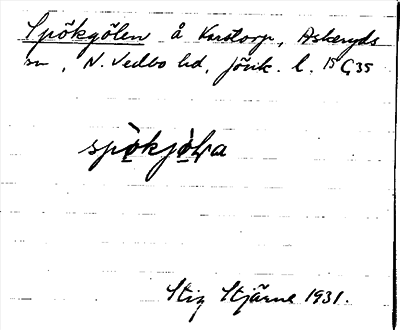 Spökgölen å Karstorp, Askeryds
sn, N. Vedbo hd, Jönk. l. 15 G 35
spökjöḷa
Stig Stjärne 1931.